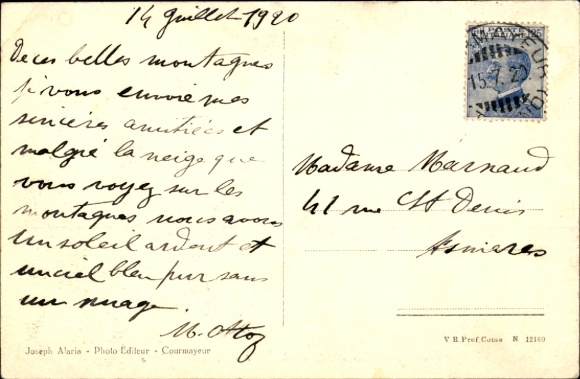 14 Juillet 1920
De ces belles montagnes
je vous envoie mes
sincères amitiées et
malgré la neige que
vous voyez sur les
montagnes nous avons
un soleil ardent et
un ciel bleu pur sans
un nuage.
Madame Marnaud
41 rue St Denis
Asnieres
MAYEUR
15.7.2
Joseph Alaria - Photo Editeur - Courmayeur
V. R. Pref. Cuneo N 12169